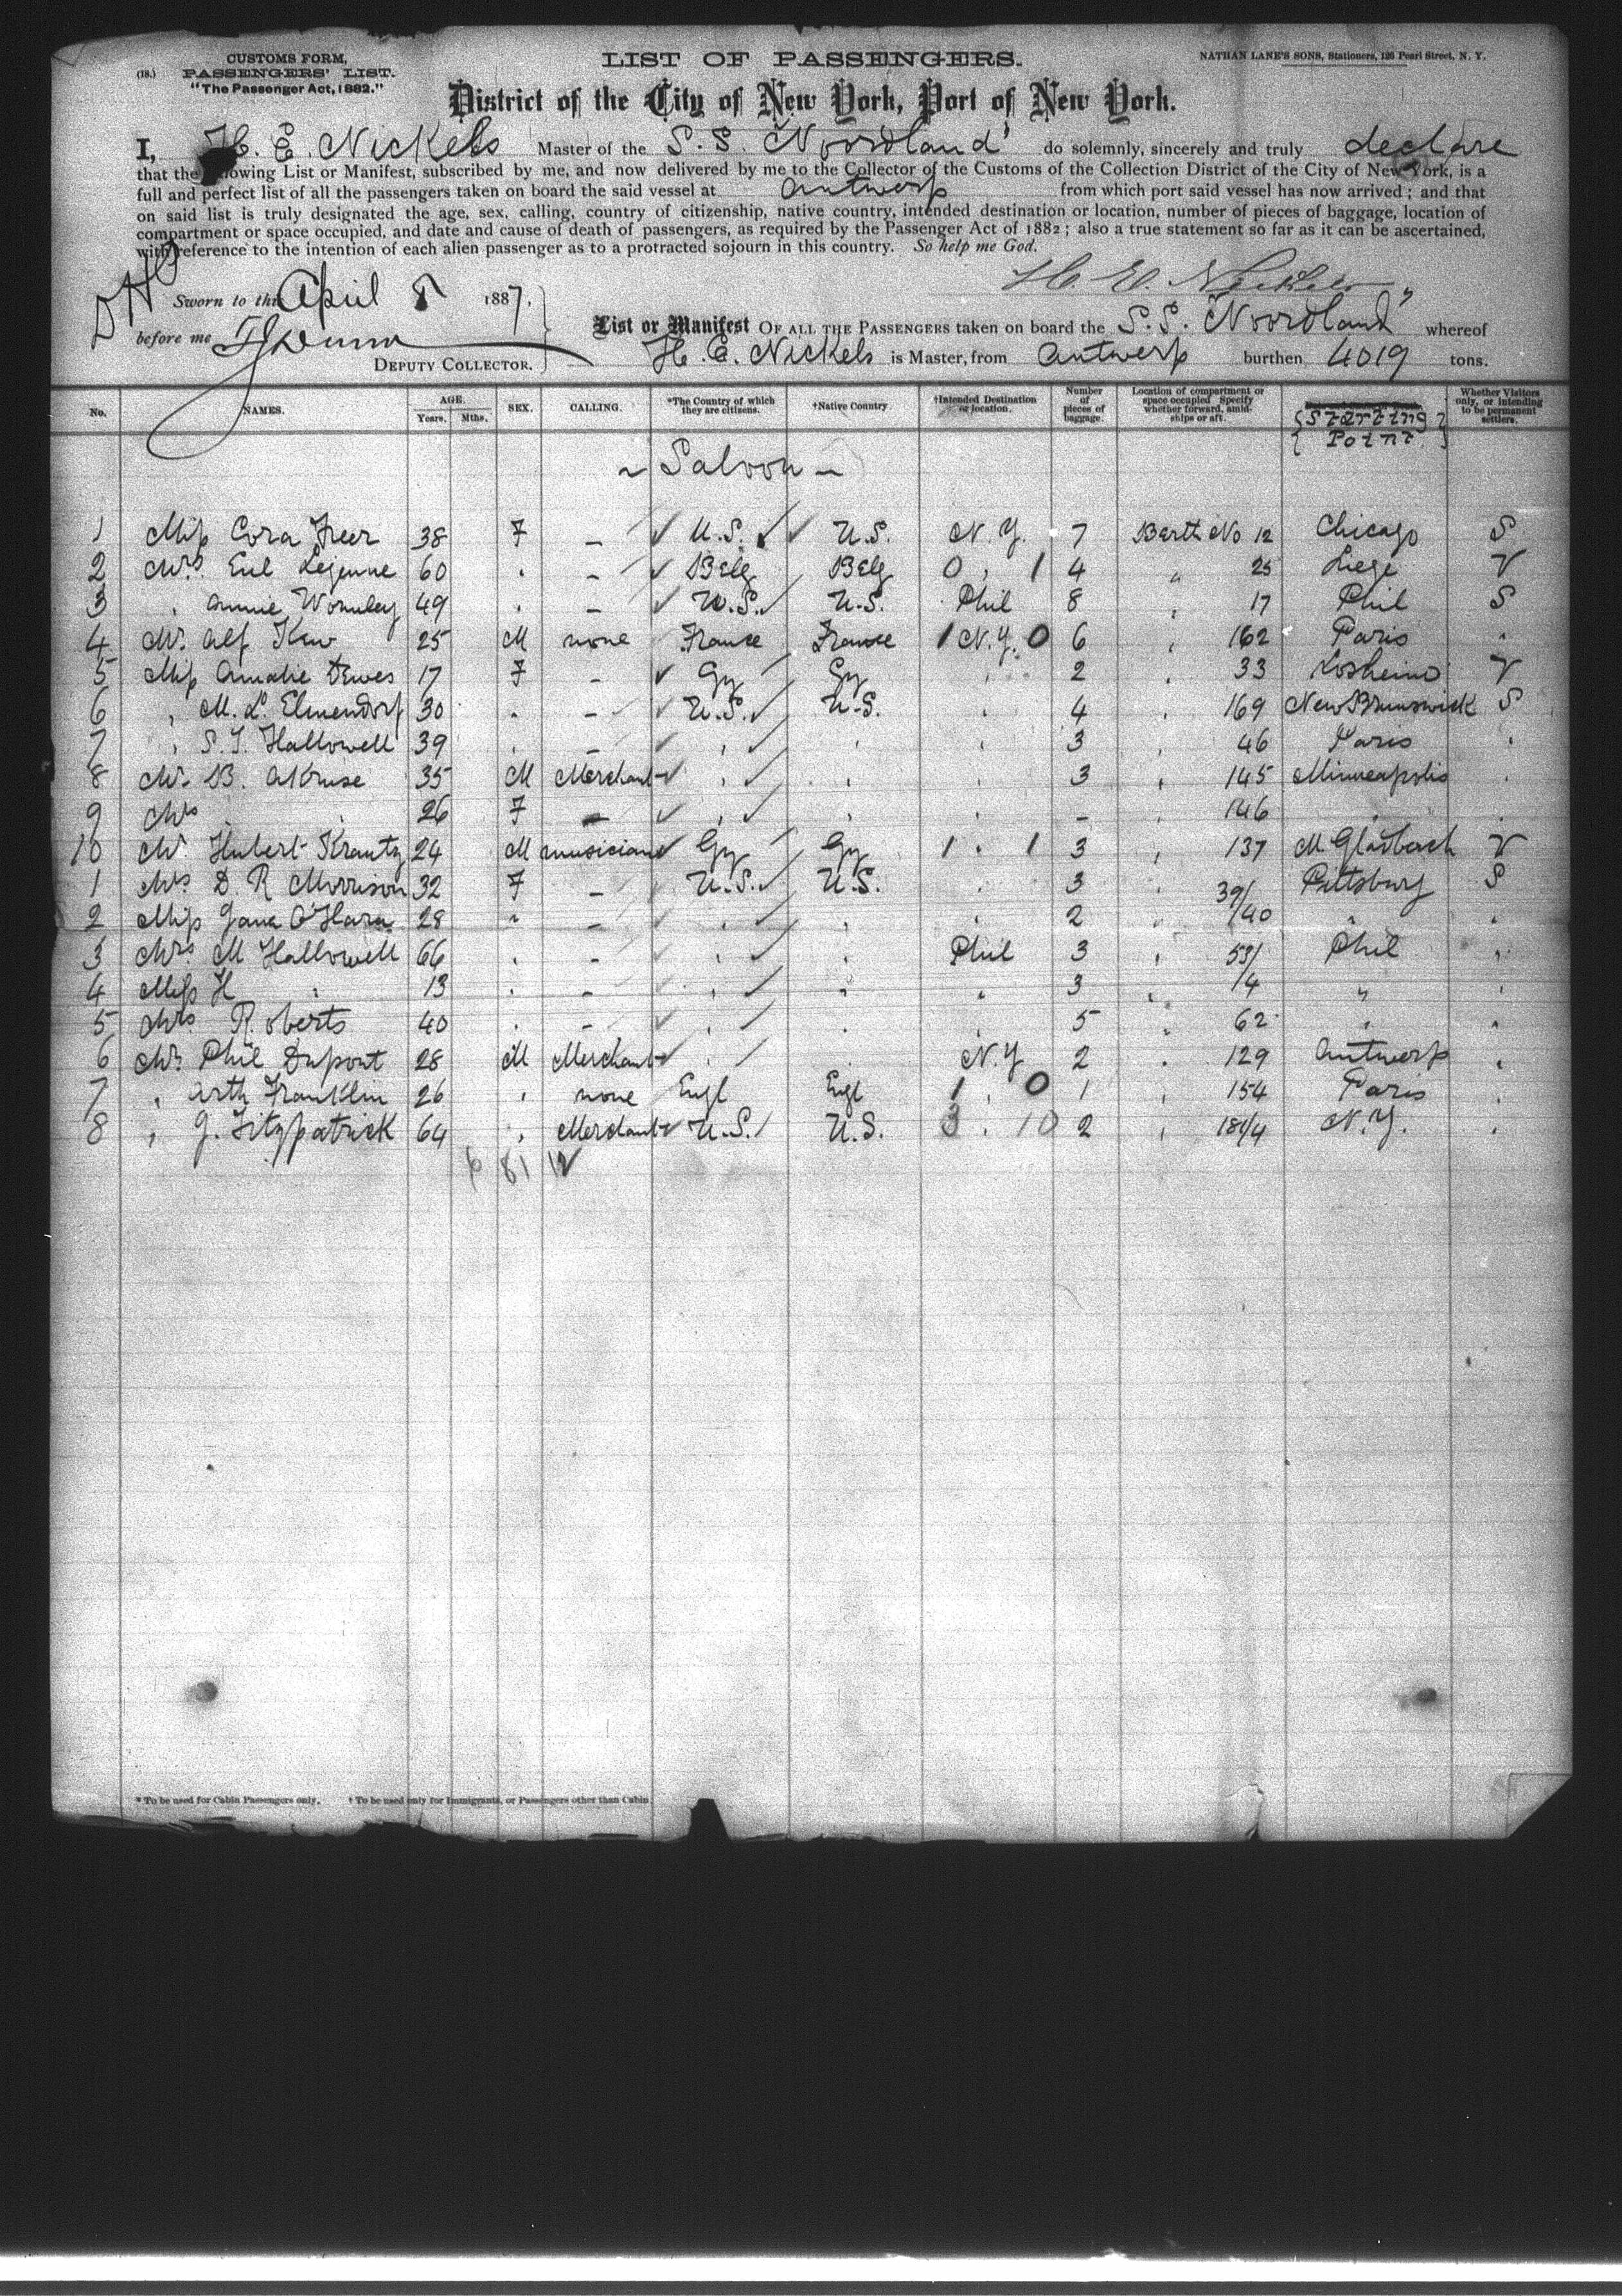 (18.) CUSTOMS FORM,
PASSENGERS' LIST.
"The Passenger Act, 1882."
LIST OF PASSENGERS.
NATHAN LANE'S SONS, Stationers, 126 Pearl Street, N. Y.
District of the City of New York, Port of New York.
I, H. E. Nickels Master of the S. S. "Noordland" do solemnly, sincerely and truly declare
that the following List or Manifest, subscribed by me, and now delivered by me to the Collector of the Customs of the Collection District of the City of New York, is a
full and perfect list of all the passengers taken on board the said vessel at Antwerp from which port said vessel has now arrived; and that
on said list is truly designated the age, sex, calling, country of citizenship, native country, intended destination or location, number of pieces of baggage, location of
compartment or space occupied, and date and cause of death of passengers, as required by the Passenger Act of 1882; also a true statement so far as it can be ascertained,
with reference to the intention of each alien passenger as to a protracted sojourn in this country. So help me God.
H. E. Nickels
Sworn to this April 8 1887,
before me
DEPUTY COLLECTOR.
List or Manifest OF ALL THE PASSENGERS taken on board the S. S. "Noordland" whereof
H. E. Nickels is Master, from Antwerp burthen 4019 tons.
No. NAMES. AGE. Years. Mths. SEX. CALLING. *The Country of which they are citizens. †Native Country. †Intended Destination or location. Number of pieces of baggage. Location of compartment or space occupied. Specify whether forward, amidships or aft. {Starting Point} Whether Visitors only, or intending to be permanent settlers.
~ Saloon ~
1 Miss Cora Freer 38 F - U.S. U.S. N.Y. 7 Berth No 12 Chicago S
2 Mrs. Eul Lejeune 60 " - Belg Belg 0 " 1 4 " 25 Liege V
3 " Annie Wormley 49 " - U.S. U.S. Phil 8 " 17 Phil S
4 Mr. Alf 25 M none France France 1 N.Y. 0 6 " 162 Paris "
5 Miss Amalie Dewes 17 F - Gy Gy " 2 " 33 Losheim V
6 " M. L. Elmendorf 30 " - U.S. U.S. " 4 " 169 New Brunswick S
7 " S. J. Hallowell 39 " - " " " 3 " 46 Paris "
8 Mr. B. 35 M Merchant " " " 3 " 145 Minneapolis "
9 Mrs " " 26 F - " " " - 146 " "
10 Mr. Hubert Krantz 24 M musician Gy Gy 1 " 1 3 " 137 M. Gladbach V
1 Mrs D. R Morrison 32 F - U.S. U.S. " 3 " 39/ Pittsburg S
2 Miss Jane O'Hara 28 " - " " " 2 " /40 " "
3 Mrs. M Hallowell 66 " - " " Phil 3 " 53/ Phil "
4 Miss H " 13 " - " " " 3 " /4 " "
5 Mrs Roberts 40 " - " " " 5 " 62 " "
6 Mr. Phil Dupont 28 M Merchant " " N.Y 2 " 129 Antwerp "
7 " Arth Franklin 26 " none Engl Engl 1 " 0 1 " 154 Paris "
8 " J. Fitzpatrick 64 " Merchant U.S. U.S. 3 " 10 2 " 181/4 N.Y. "
6 81 12
* To be used for Cabin Passengers only. † To be used only for Immigrants, or Passengers other than Cabin.